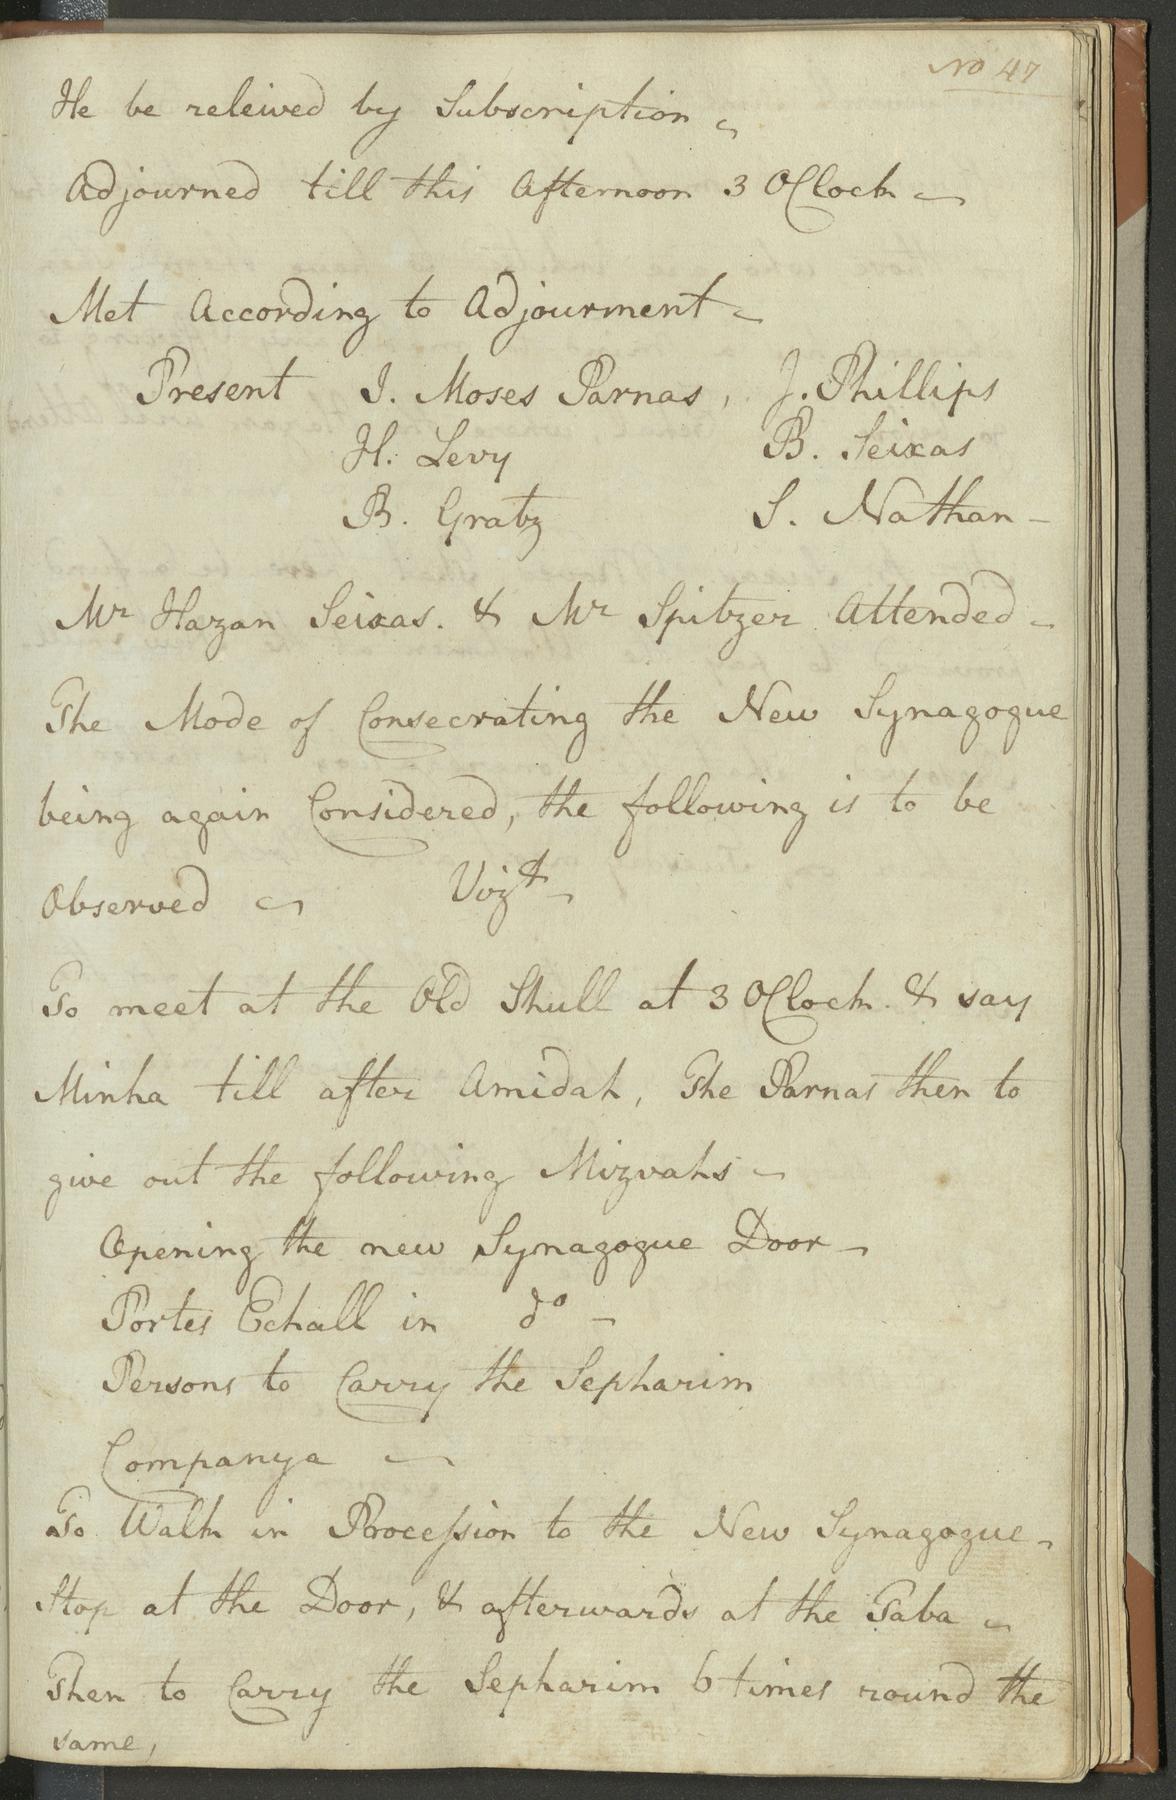 No 47
He be releived by Subscription
Adjourned till this Afternoon 3 OClock
Met According to Adjourment
Present I. Moses Parnas, J. Phillips
H. Levy B. Seixas
B. Gratz S. Nathan
Mr Hazan Seixas. & Mr Spitzer Attended
The Mode of Consecrating the New Synagogue
being again Considered, the following is to be
Observed Vizt
To meet at the Old Shull at 3 OClock & say
Minha till after Amidah, The Parnas then to
give out the following Mizvahs
Opening the new Synagogue Door
Portes Echall in do
Persons to Carry the Sepharim
Companya
To Walk in Procession to the New Synagogue
Stop at the Door, & afterwards at the Taba
Then to Carry the Sepharim 6 times round the
same,